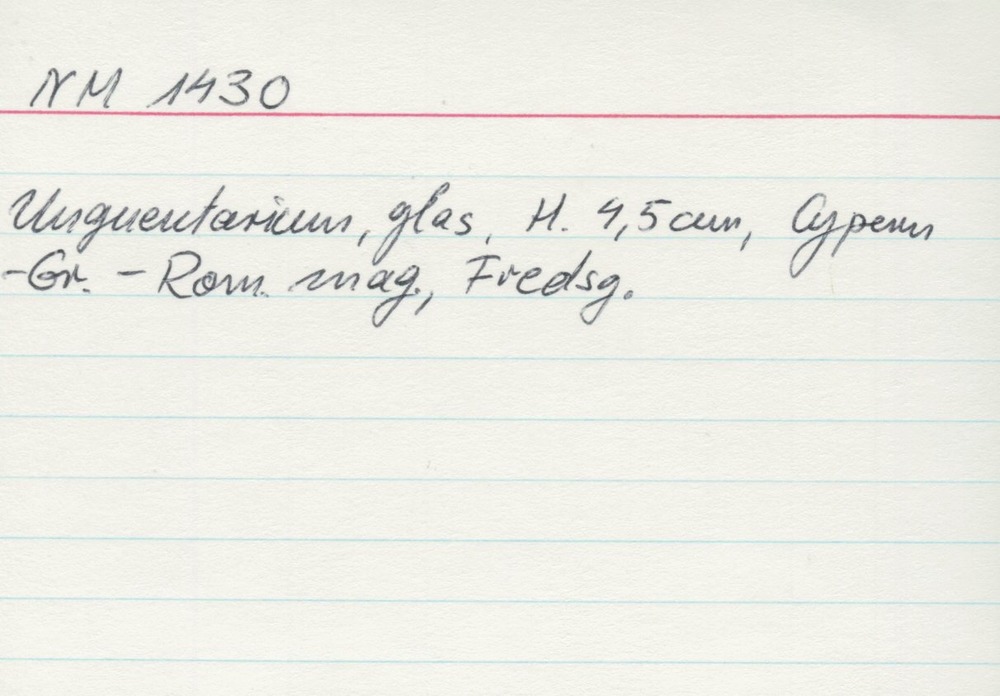 NM 1430
Unguentarium, glas, H. 4,5 cm, Cypern
-Gr. - Rom. mag., Fredsg.